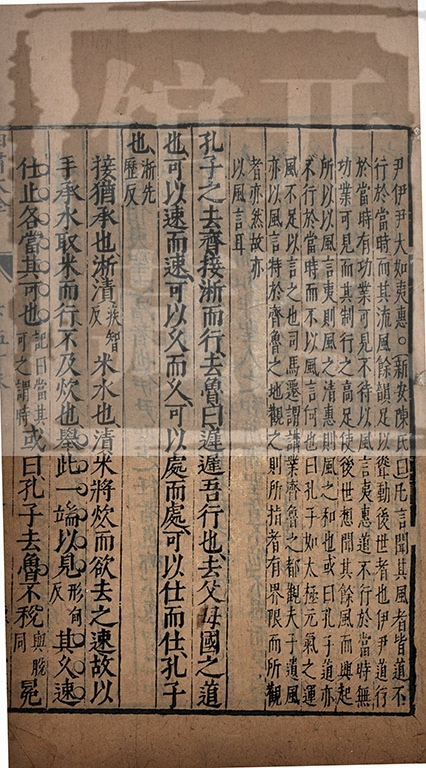 尹伊尹大如夷惠○新安陳氏曰凡言聞其風者皆道不
行於當時而其流風餘韻足以聳動後世者也伊尹道行
於當時有功業可見不待以風言夷惠道不行於當時無
功業可見而其制行之高足使後世想聞其餘風而興起
所以以風言夷則風之清惠則風之和也或曰孔子道亦
不行於當時而不以風言何也曰孔子如太極元氣之運
風不足以言之也司馬遷謂講業齊魯之都觀夫子遺風
亦以風言特於齊魯之地觀之則所指者有界限而所觀
者亦然故亦
以風言耳
孔子之去齊接淅而行去魯曰遲遲吾行也去父母國之道
也可以速而速可以久而久可以處而處可以仕而仕孔子
也淅先歷反
接猶承也淅漬疾智反米水也漬米將炊而欲去之速故以
手承水取米而行不及炊也舉此一端以見形甸反其久速
仕止各當其可也記曰當其可之謂時或曰孔子去魯不稅與脫同冕